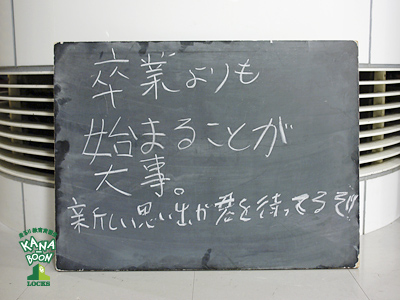 卒業よりも
始まることが
大事。
新しい思い出が君を待ってるぞ!!
KANA
BOON
LOCKS